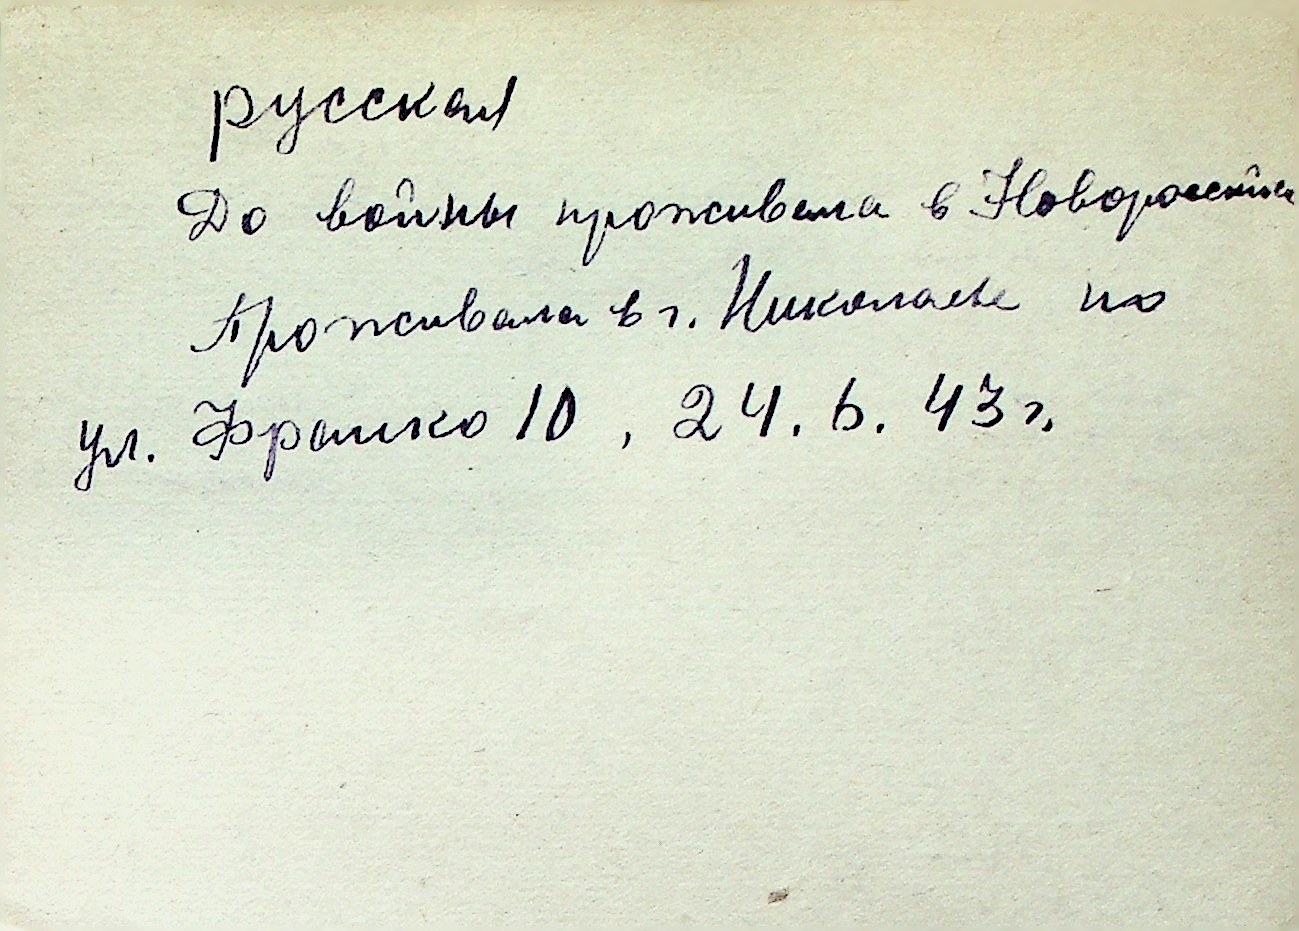 русская
До войны проживала в Новороссийске
Проживала в г. Николаеве по
ул. Франко 10, 24.6.43 г.